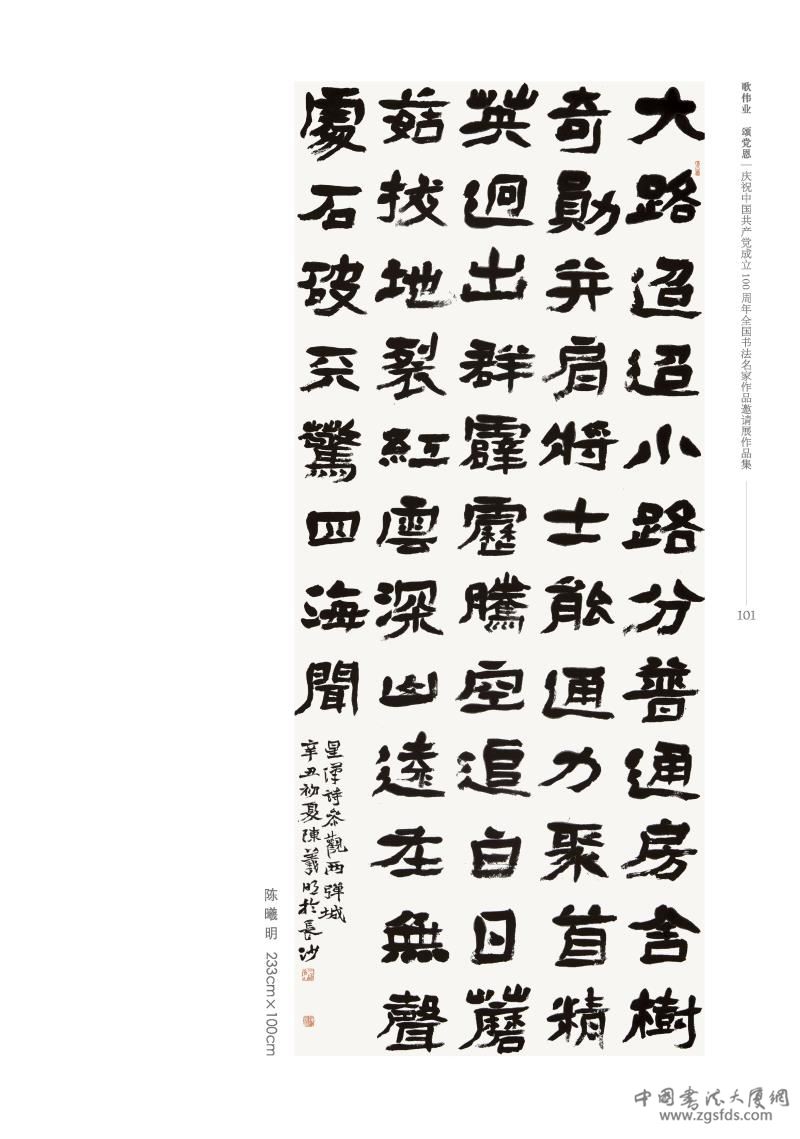 歌伟业 颂党恩|庆祝中国共产党成立100周年全国书法名家作品邀请展作品集
101
大路迢迢小路分普通房舍樹
奇勛并肩將士能通力聚首精
英迥出群霹靂騰空追白日蘑
菇拔地裂紅雲深山遠在無聲
處石破天驚四海聞
星漢詩參觀兩彈城
辛丑初夏陳羲明於長沙
陈曦明 233cm×100cm
中国书法大厦網
www.zgsfds.com